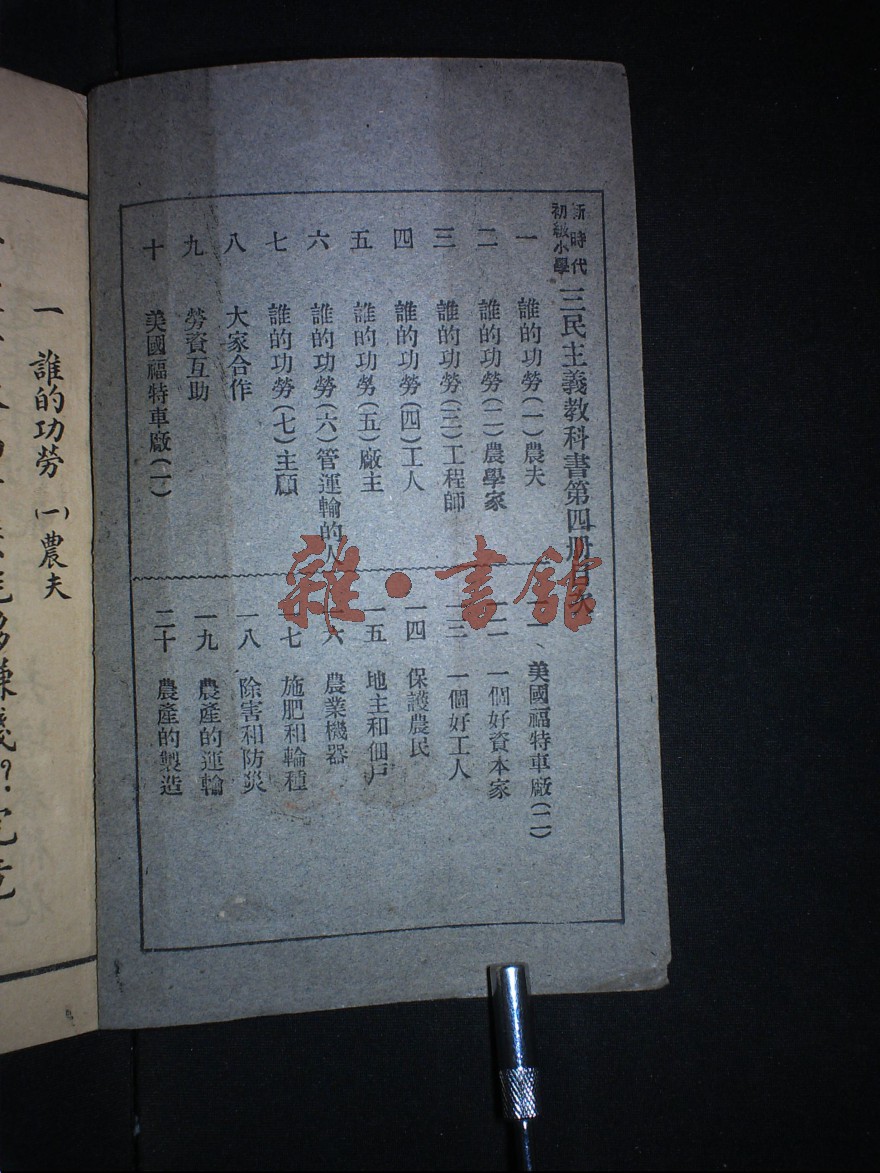 新時代
初級小學
三民主義教科書第四册目次
一 誰的功勞(一)農夫
二 誰的功勞(二)農學家
三 誰的功勞(三)工程師
四 誰的功勞(四)工人
五 誰的功勞(五)廠主
六 誰的功勞(六)管運輸的人
七 誰的功勞(七)主顧
八 大家合作
九 勞資互助
十 美國福特車廠(一)
美國福特車廠(二)
一個好資本家
一三 一個好工人
一四 保護農民
一五 地主和佃戶
一六 農業機器
一七 施肥和輪種
一八 除害和防災
一九 農產的運輸
二十 農產的製造
雜·書館
一 誰的功勞 (一)農夫